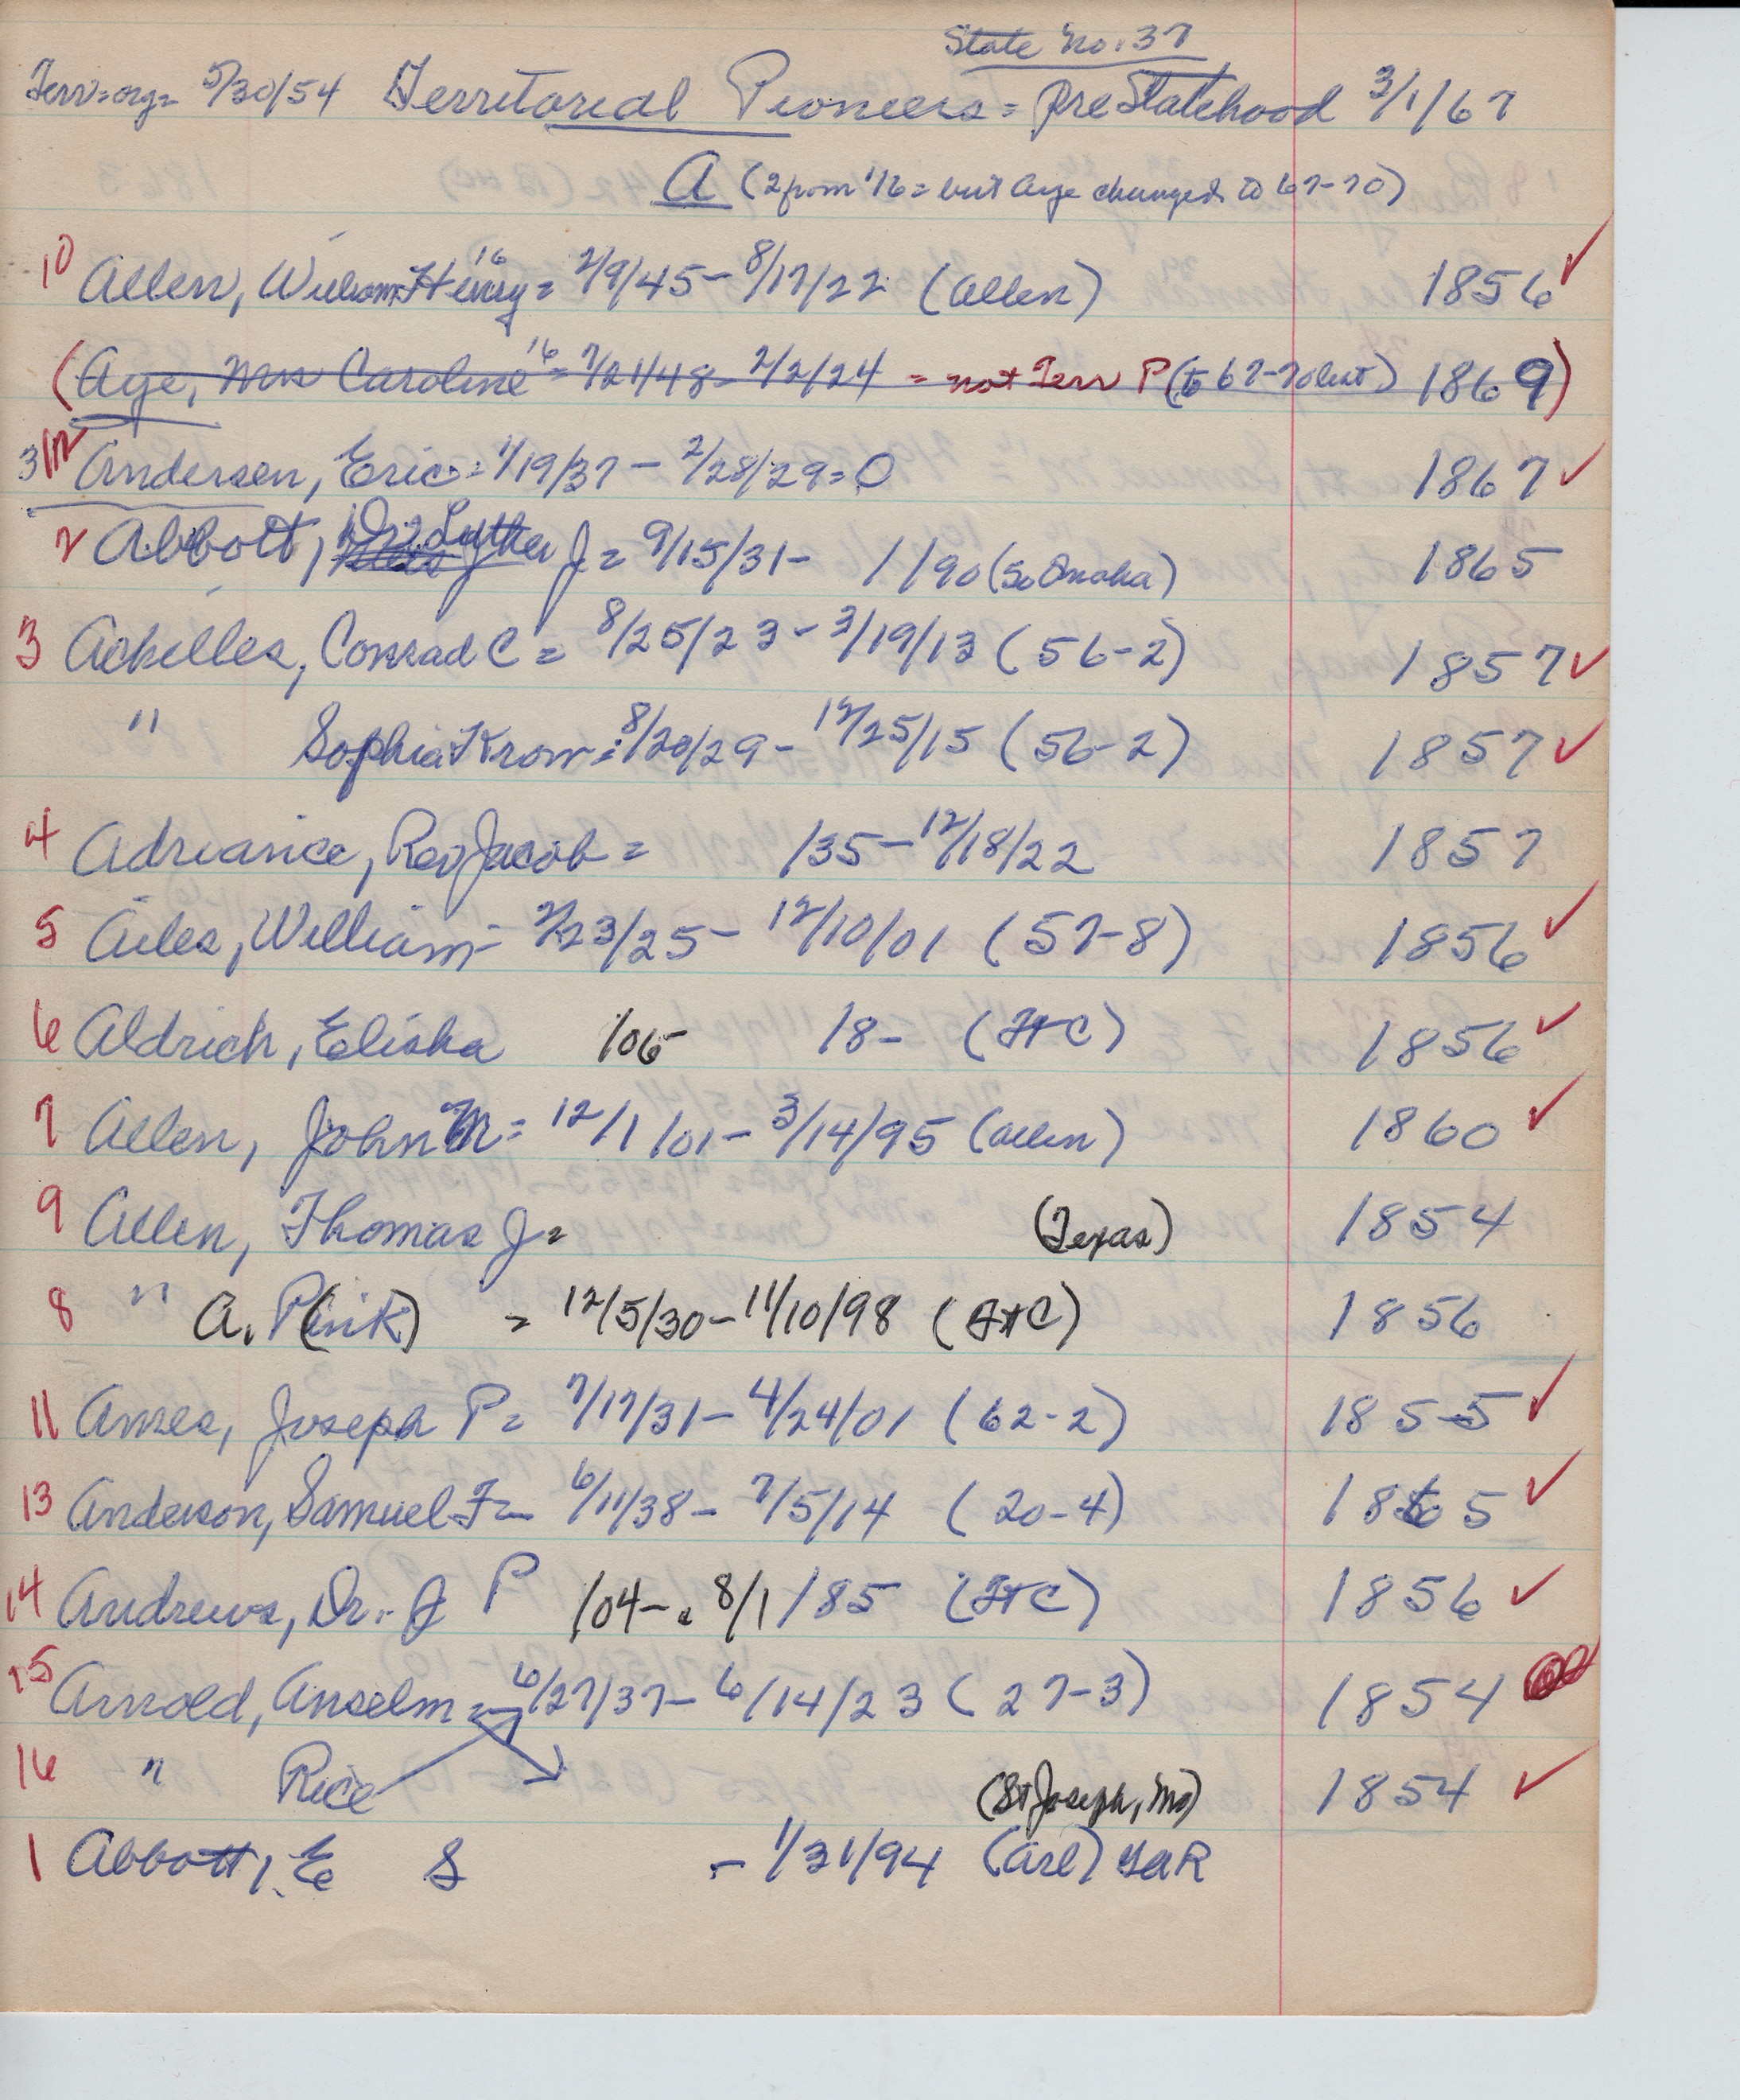 State No. 37
Terr=org= 5/30/54 Territorial Pioneers = preStatehood 3/1/67
A (2 from '16 = but Aye changed to 67-70)
10 Allen, William Henry 16 = 2/9/45 - 8/17/22 (Allen) 1856 ✓
(Aye, Mrs Caroline 16 = 7/21/48 - 2/2/24 = not Terr P (to 67-70 list) 1869)
12 Andersen, Eric = 1/19/37 - 2/28/29 = O 1867 ✓
2 Abbott, Dr. Luther J = 9/15/31 - / /90 (So Omaha) 1865
3 Achilles, Conrad C = 8/25/23 - 3/19/13 (56-2) 1857 ✓
" Sophia Krow = 8/20/29 - 12/25/15 (56-2) 1857 ✓
4 Adriance, Rev Jacob = /35 - 12/18/22 1857
5 Ailes, William - 2/23/25 - 12/10/01 (57-8) 1856 ✓
6 Aldrich, Elisha /06 18- (FtC) 1856 ✓
7 Allen, John M = 12/1/01 - 3/14/95 (Allen) 1860 ✓
9 Allen, Thomas J = (Texas) 1854
8 " A. P(ink) = 12/5/30 - 11/10/98 (FtC) 1856
11 Ames, Joseph P = 7/17/31 - 4/24/01 (62-2) 1855 ✓
13 Anderson, Samuel F - 6/11/38 - 7/5/14 (20-4) 1865 ✓
14 Andrews, Dr. J P /04 - 8/1/85 (FtC) 1856 ✓
15 Arnold, Anselm = 6/27/37 - 6/14/23 (27-3) 1854
16 " Rice (St Joseph, Mo) 1854 ✓
1 Abbott, E S - 1/31/94 (Arl) GAR